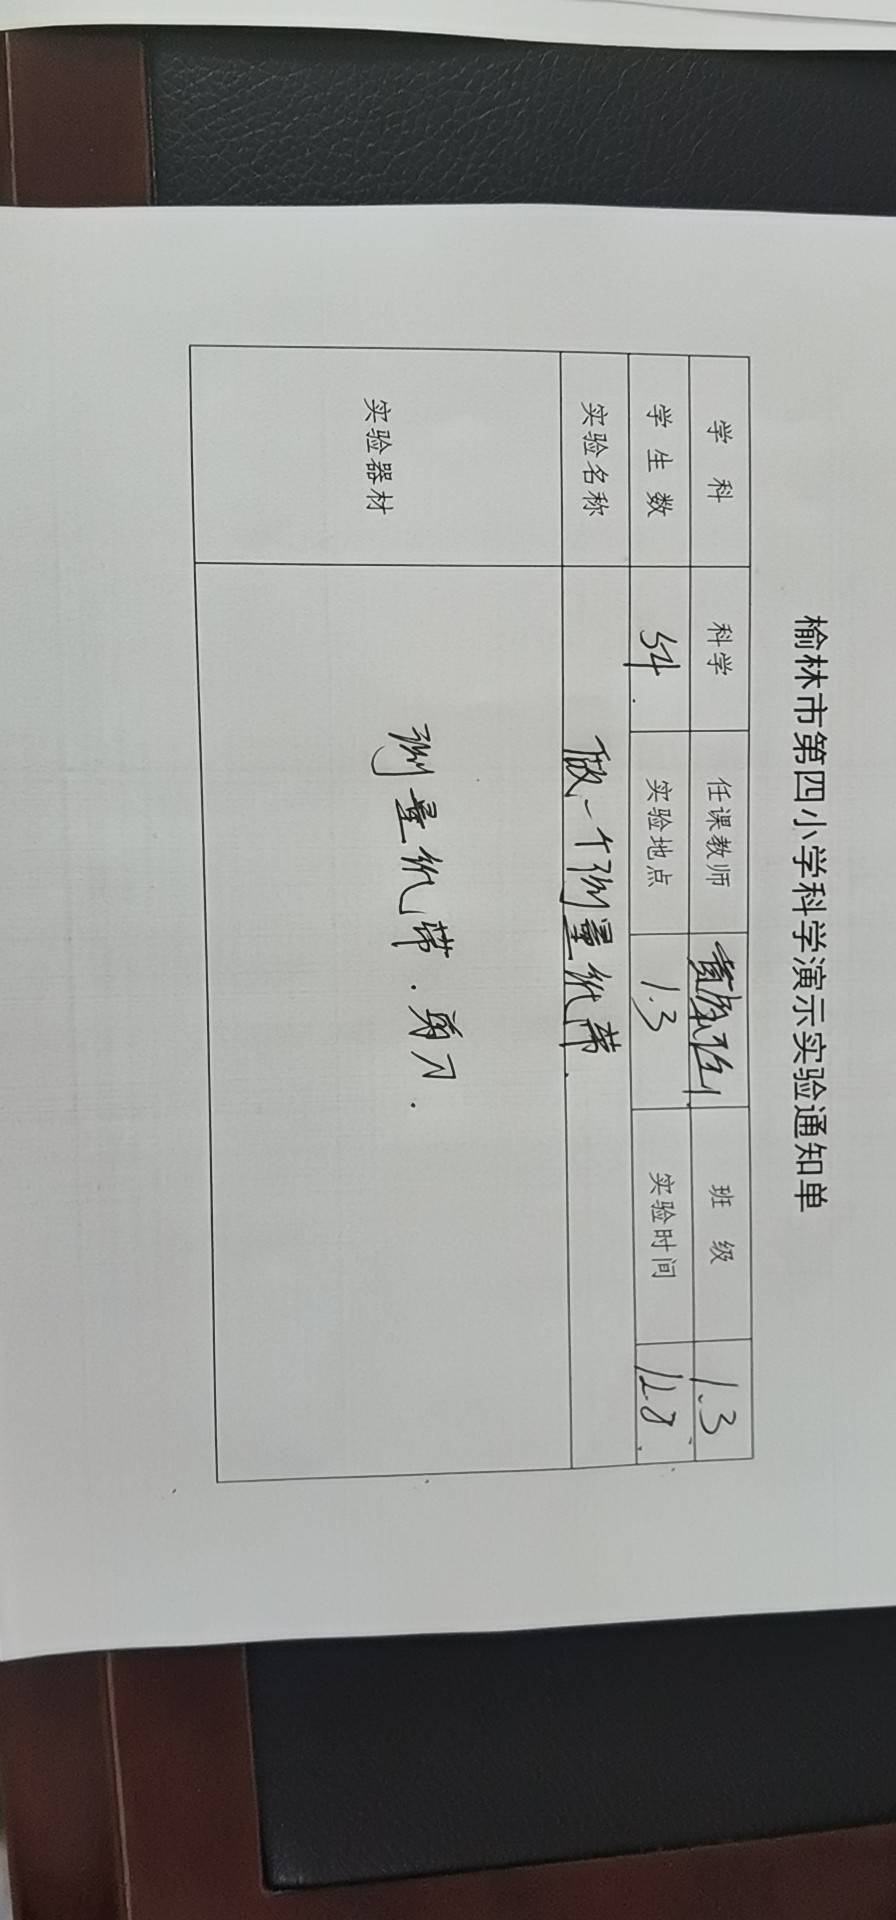 榆林市第四小学科学演示实验通知单
学 科 科学 任课教师 班 级 1.3
学 生 数 54. 实验地点 1.3 实验时间 12.8.
实验名称 做一个测量纸带.
实验器材 测量纸带.剪刀.